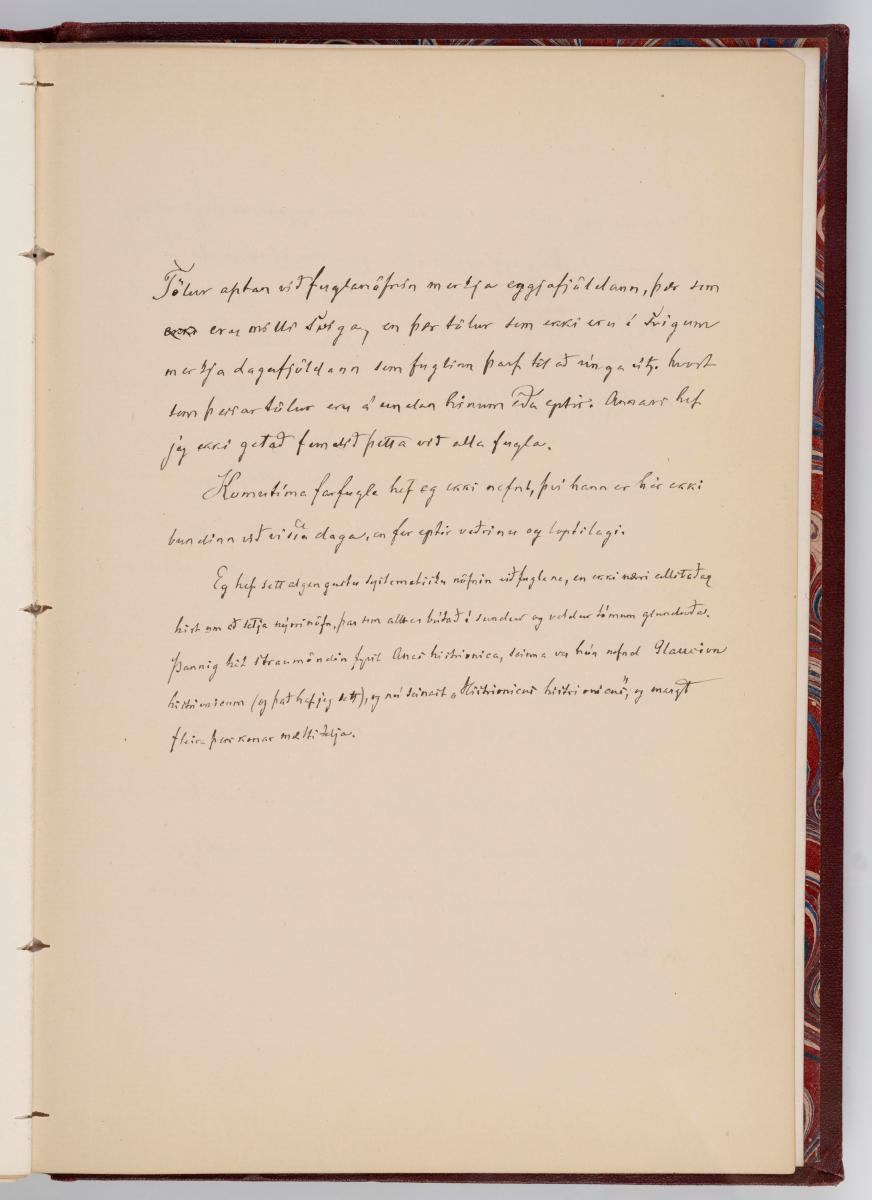 Tölur aptan við fuglanöfnin merkja eggjafjöldann, þær sem
ekki eru milli sviga, en þær tölur sem ekki eru í svigum
merkja dagafjöldann sem fuglinn þarf til að únga út, hvort
sem þessar tölur eru á undan hinum eða eptir. Annars hef
jeg ekki getað fundið þetta við alla fugla.
Komutíma farfugla hef eg ekki nefnt, því hann er hér ekki
bundinn við vissa daga, en fer eptir veðrinu og loptslagi.
Eg hef sett algengustu systematisku nöfnin við fuglana, en ekki næri allstaðar
hirt um að setja nýrri nöfn, þar sem allt er bútað í sundur og veldur tómum glundroða.
Þannig hét straumöndin fyrst Anas histrionica, seinna var hún nefnd Glaucion
histrionicum (og það hef jeg sett), og nú seinast „Histrionicus histrionicus“, og margt
fleira þess konar mætti telja.